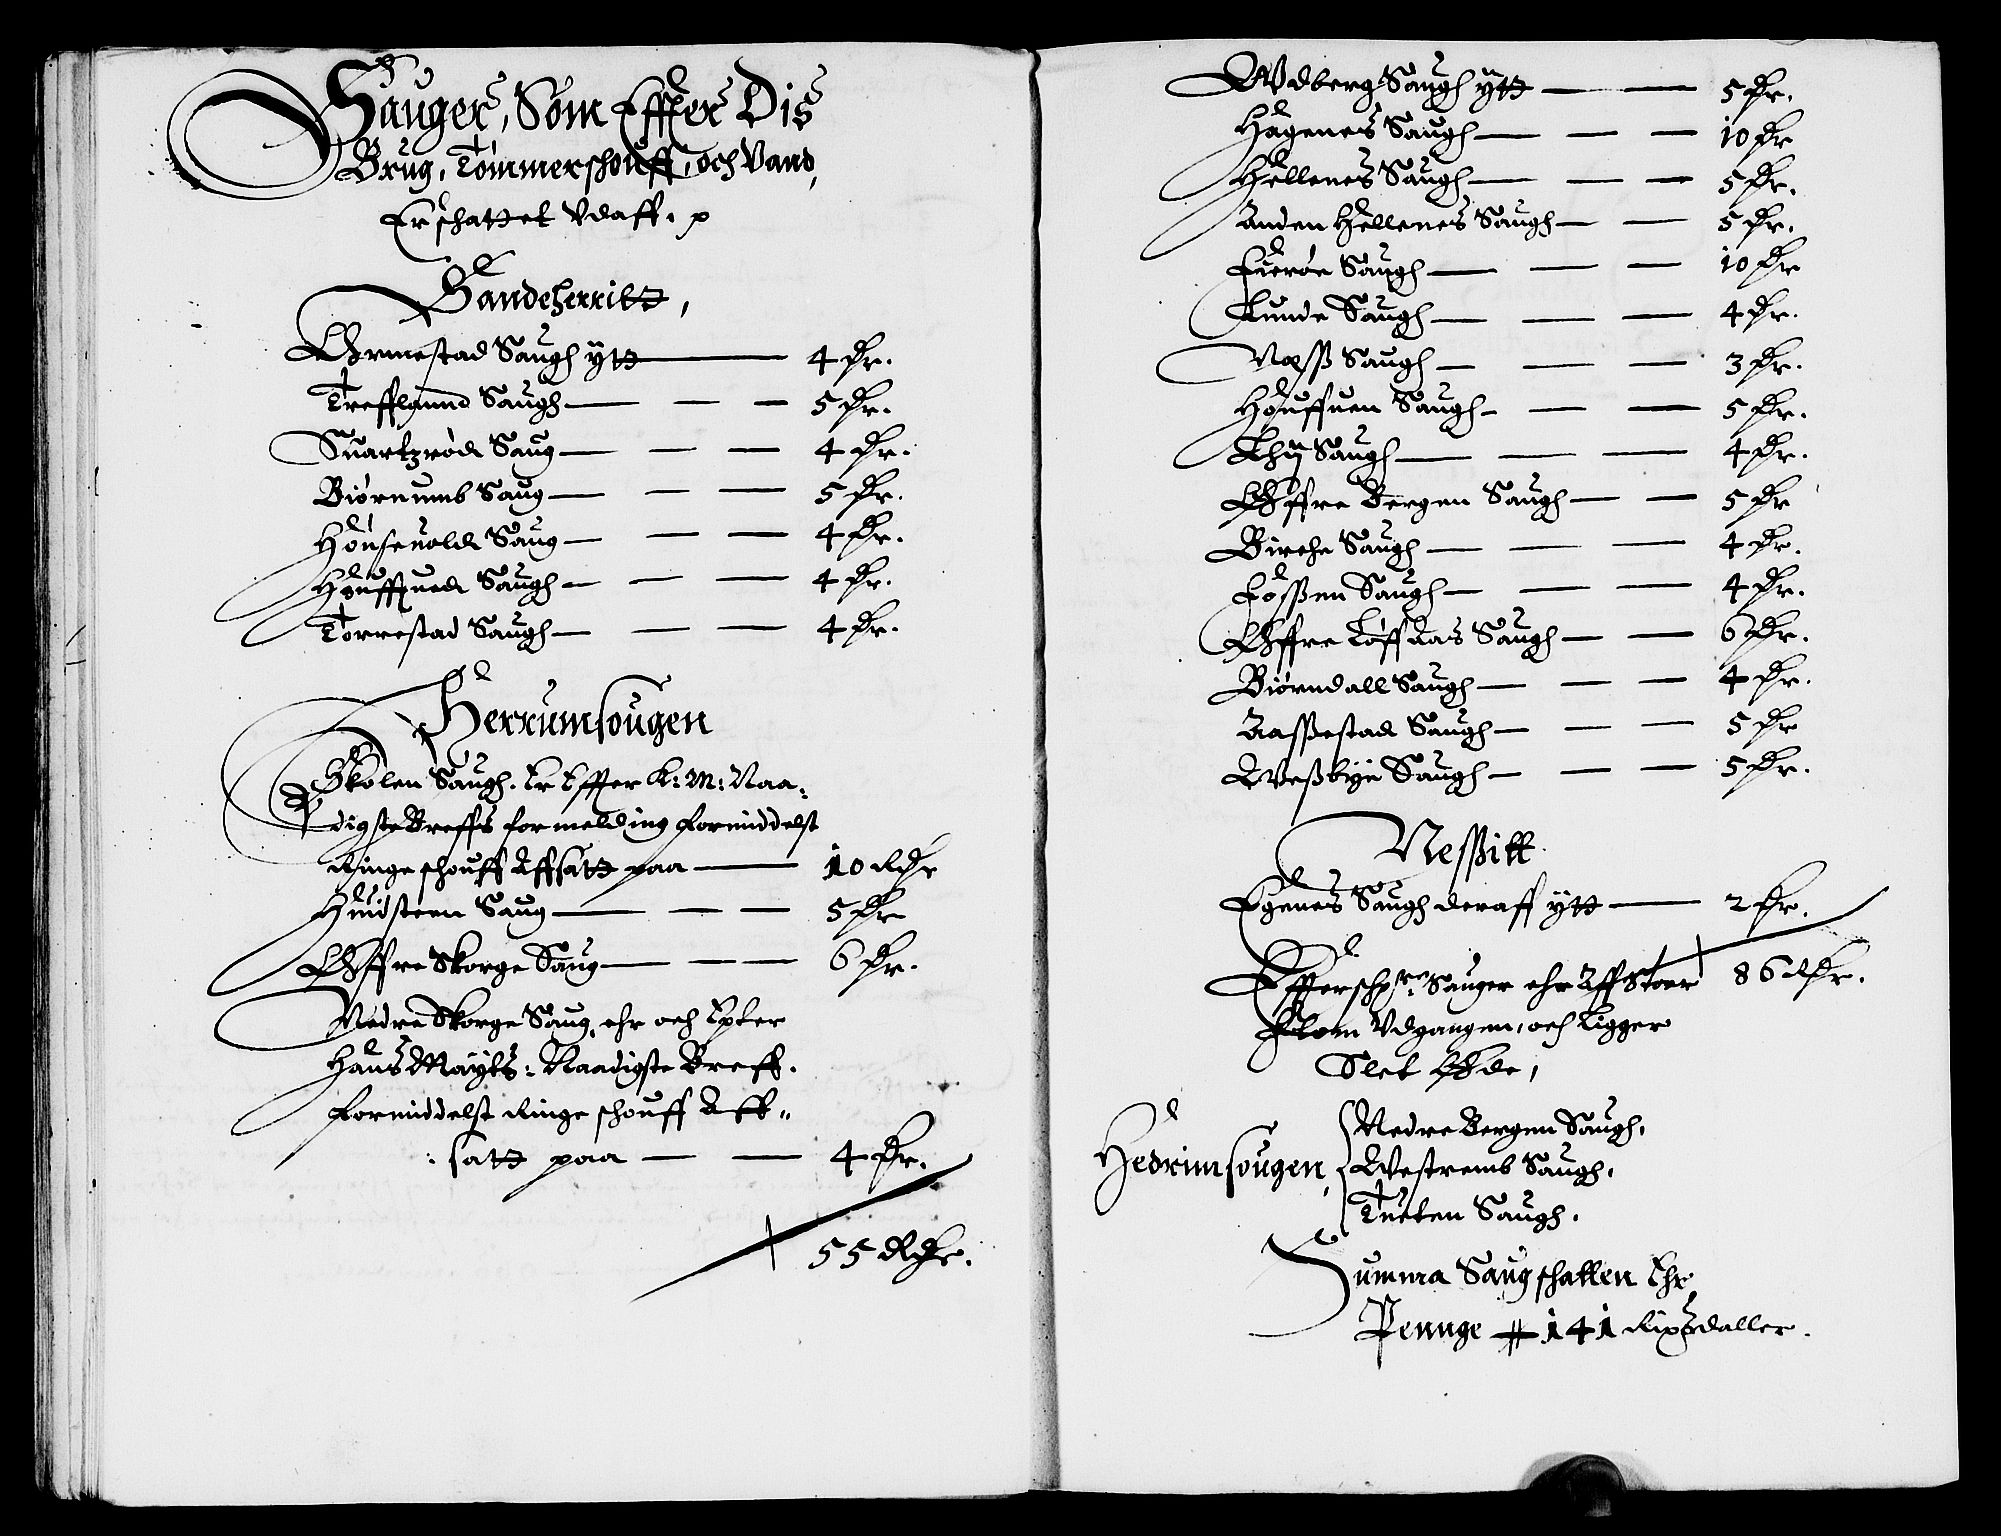 Sauger, Som Effter Dis
Brug, Tømmerschouff, och Vand,
Er schattet Vdaff.
Sandeherritt,
Ormestad Saugh ÿtt — 4 Dr.
Trefflannd Saugh — 5 Dr.
Suartzrød Saug — 4 Dr.
Biørnumb Saug — 5 Dr.
Housevold Saug — 4 Dr.
Houffued Saugh — 4 Dr.
Torrestad Saugh — 4 Dr.
Herrumsougen
Skolen Saugh. Er Effter K: M: Naa,
digste Breffs formelding formiddelst
Ringe schouff Affsatt paa — 10 Rdr
Huidsteen Saug — 5 Dr
Øffre Skorge Saug — 6 Dr.
Nedre Skorge Saug, ehr och Epter
Hans Maÿts: Naadigste Breff.
formiddelst Ringe schouff Aff-
satt paa — 4 Dr.
55 Rdr.
Odberg Saugh ÿtt — 5 Dr.
Hagenes Saugh — 10 Dr
Hellenes Saugh — 5 Dr.
Anden Hellenes Saugh — 5 Dr.
Fierøe Saugh — 10 Dr
Lunde Saugh — 4 Dr.
Næss Saugh — 3 Dr.
Houffuen Saugh — 5 Dr.
Thÿ Saugh — 4 Dr.
Øffre Bergen Saugh — 5 Dr
Birche Saugh — 4 Dr.
Fossen Saugh — 4 Dr.
Øffre Løffaas Saugh — 6 Dr.
Biørndall Saugh — 4 Dr.
Aassestad Saugh — 5 Dr
Wesbÿe Saugh — 5 Dr.
Nessitt
Egenes Saugh deraff ÿtt — 2 Dr.
86 Rdr.
Effterschr: Sauger ehr Aff Stoer
Flom Vdgangen, och Ligger
Slet Øde,
Hedrimsougen,
Nedre Bergen Saugh,
Westremb Saugh,
Tueten Saugh.
Summa Saugschatten Ehr
Pennge 141 Rixdaller.